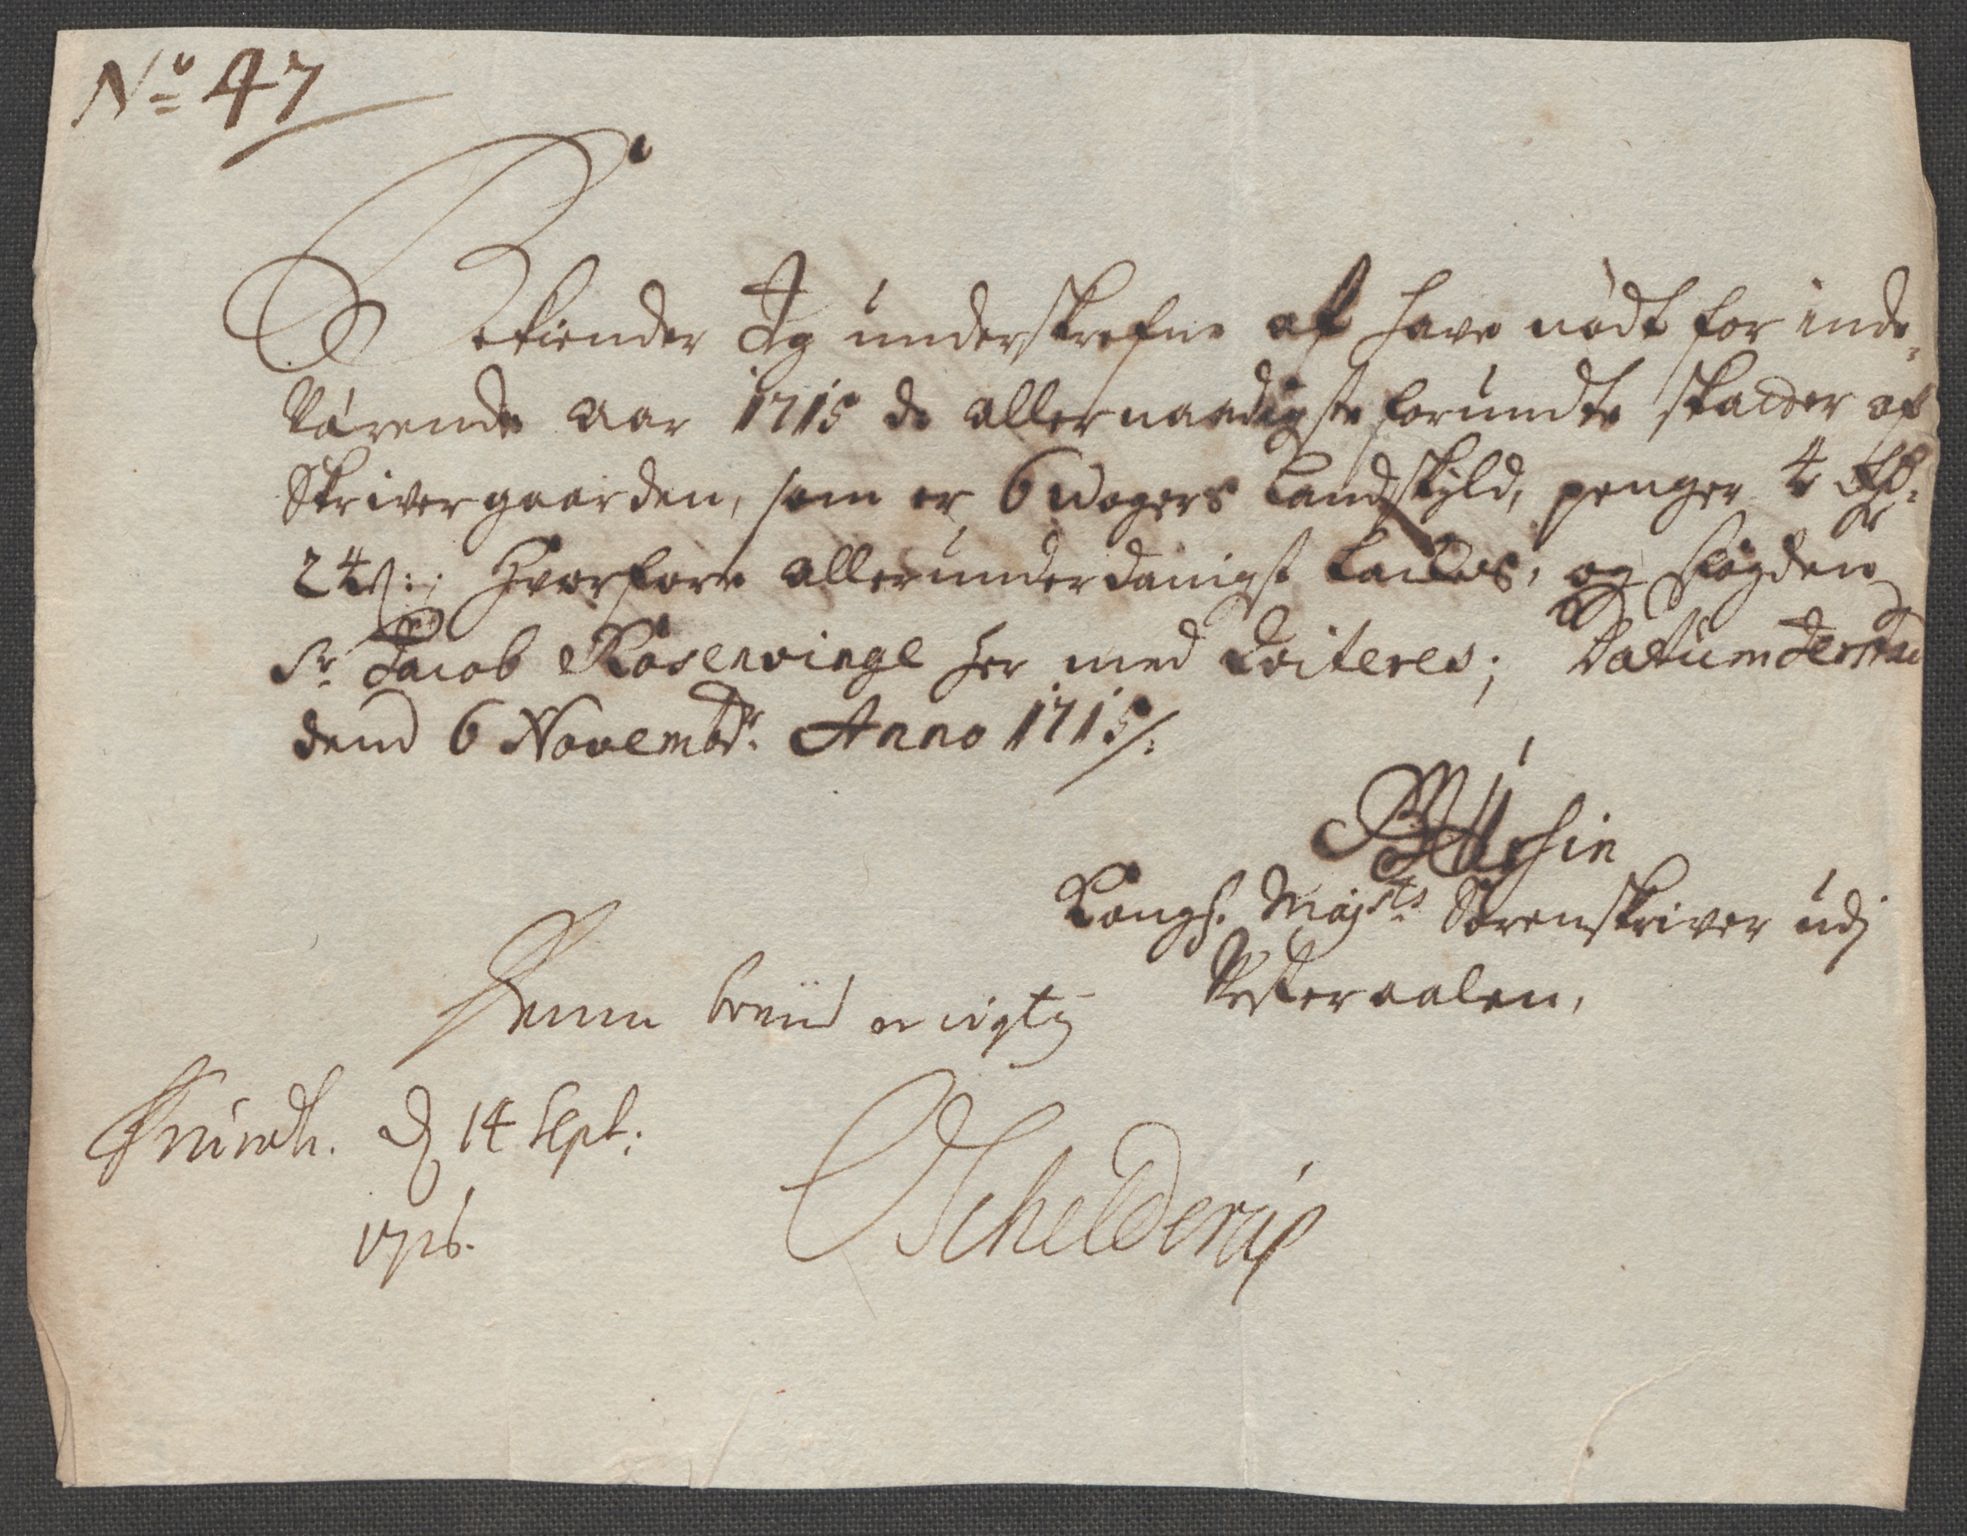 No 47
Bekiender Jg underskrefne at have nødt for inde¬
værende aar 1715 de allernaadigste forundte skatter af
Skrivergaarden, som er 6 woger Landskyld, penger 4 rdr:
24 s:; Hvorfore allerunderdanigst takkes, og fogden
Sr Jacob Rosenvinge her med Qviteres; Datum
dend 6 Novembr. Anno 1715/:
Kongl. Mayts Sorenskriver udj
Vesteraalen,
Trundh. d 14 Sept:
1716.
Schelderup